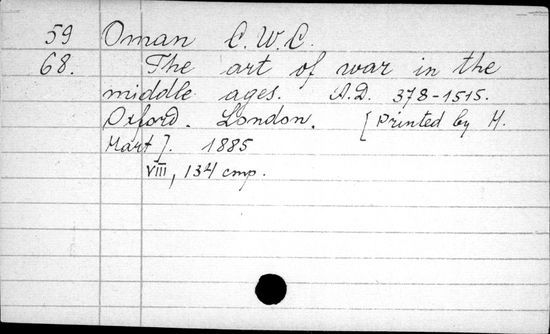 59 Oman C. W. C.
68. The art of war in the
middle ages. A.D. 378-1515.
Oxford. London. [Printed by H.
Hart]. 1885
VIII, 134 стр.